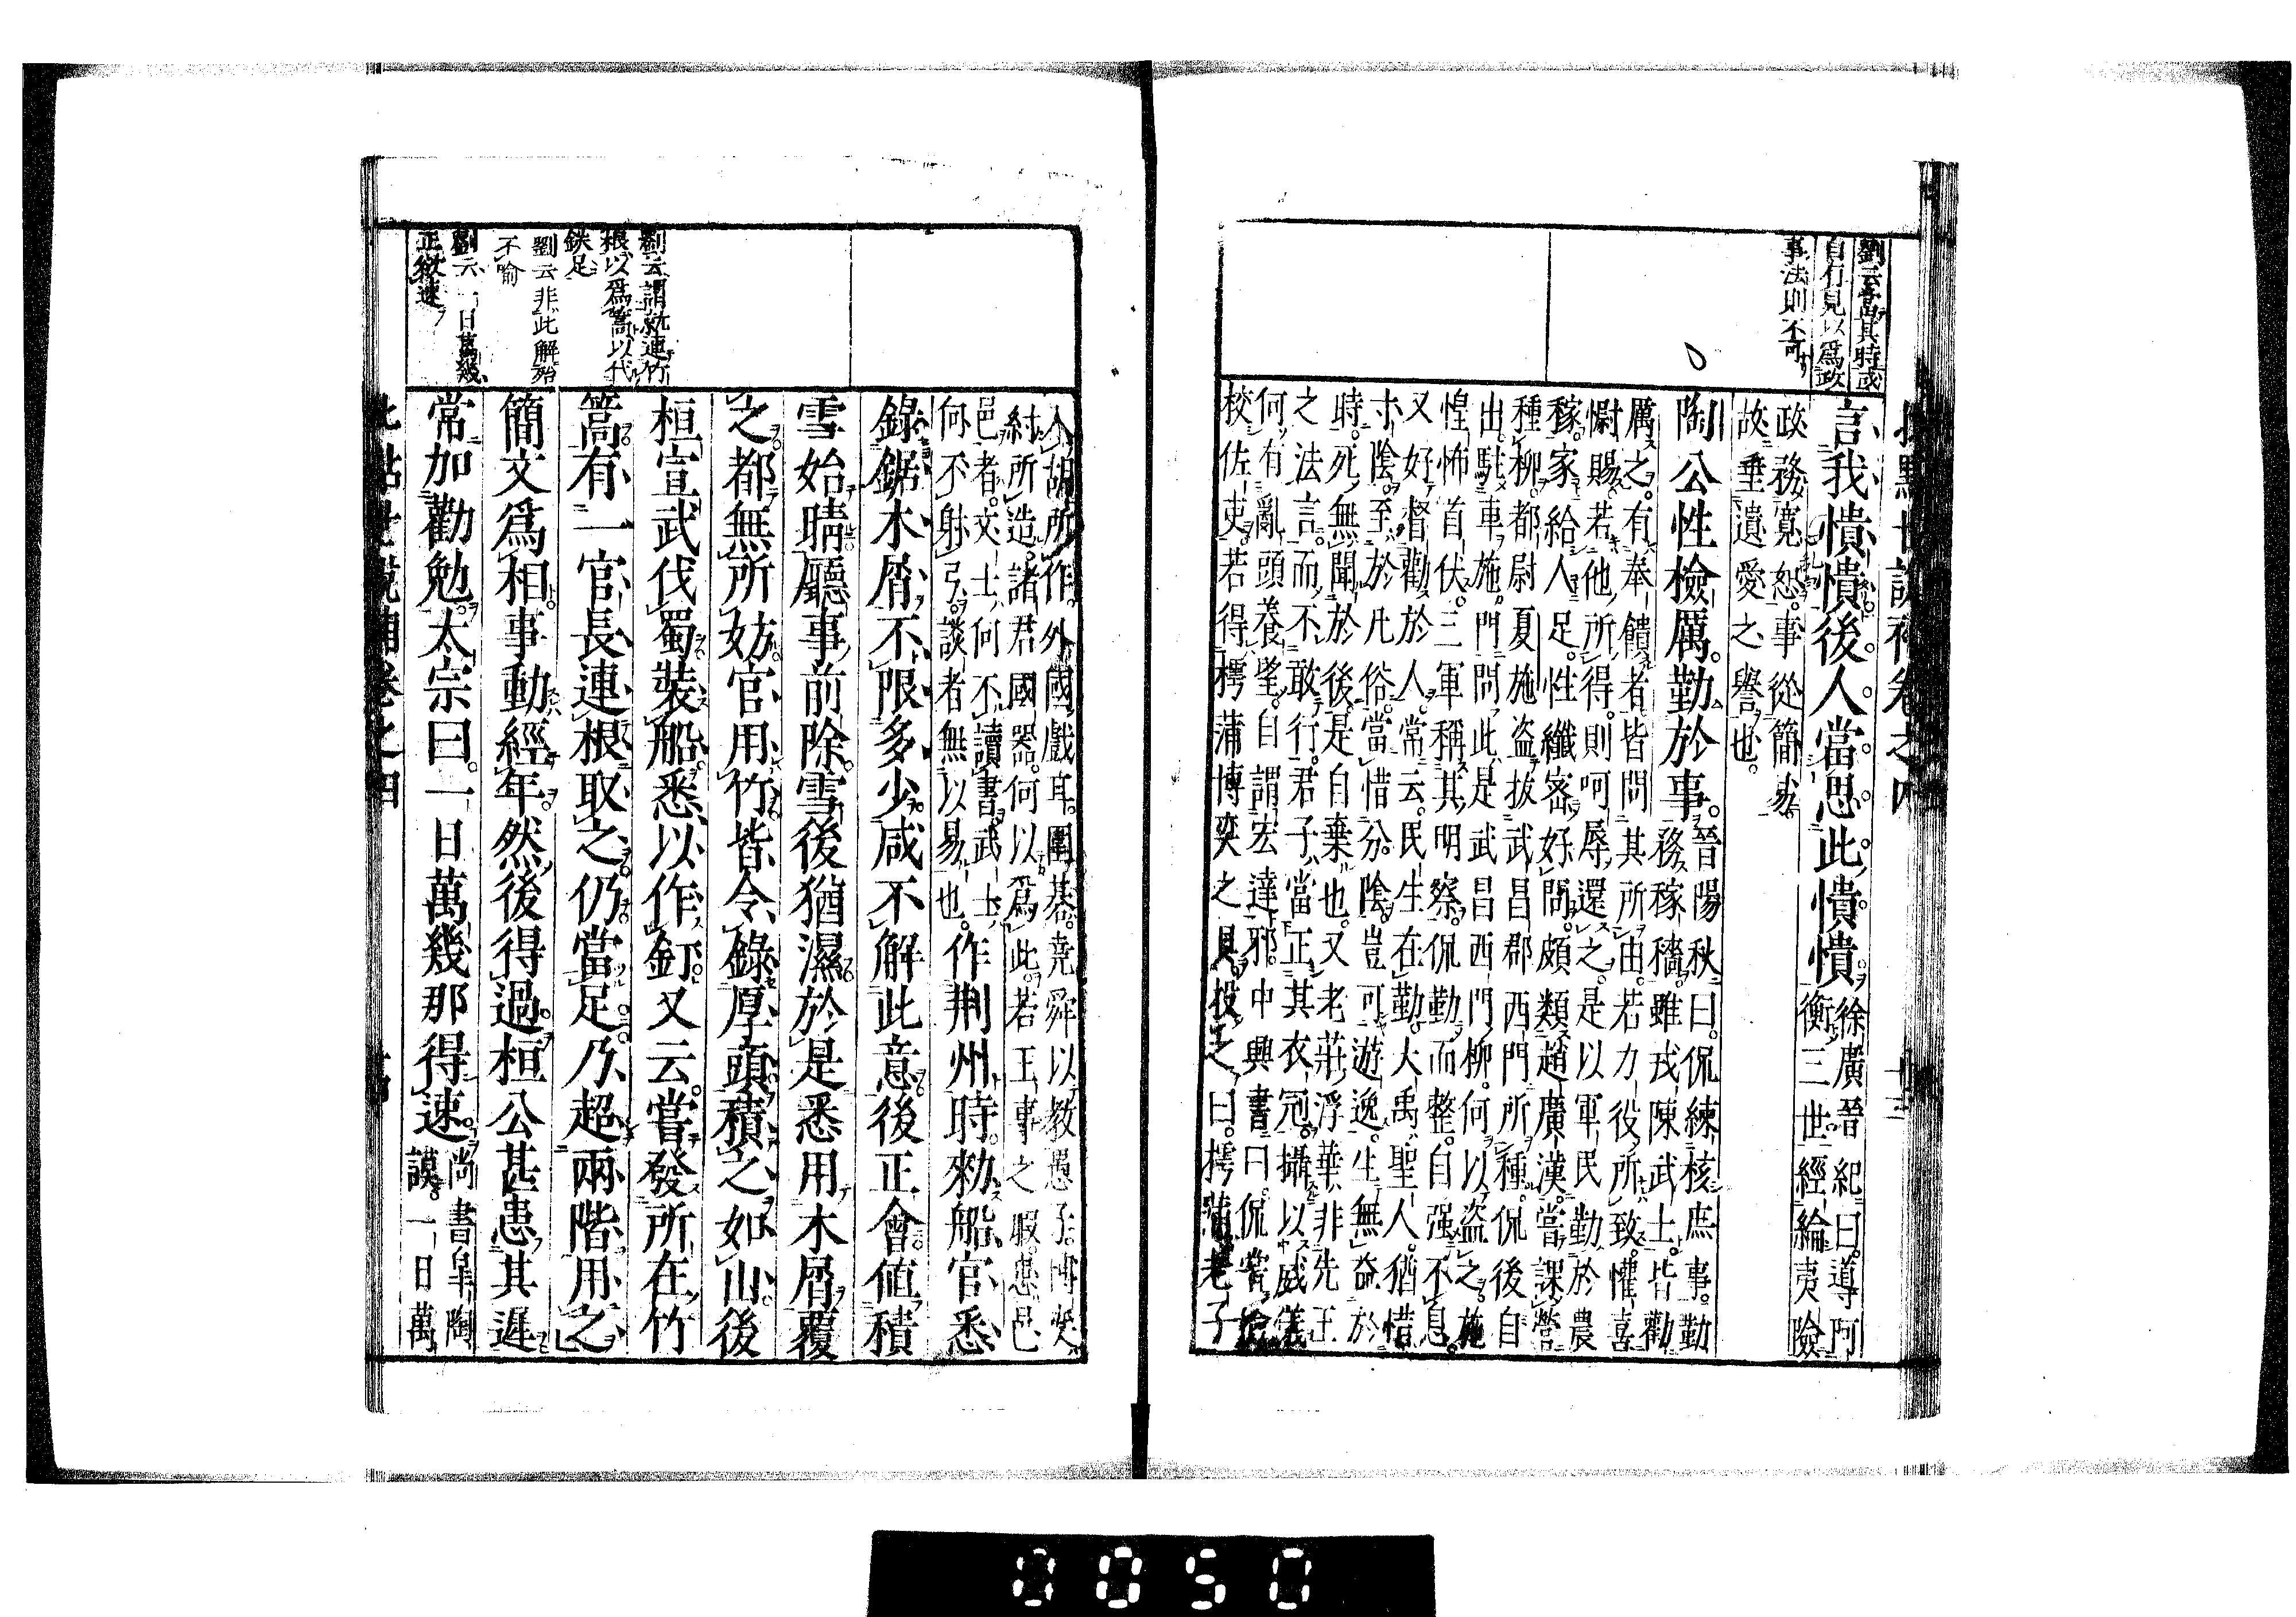 批點世說補卷之四
劉云當其時或
自有見以爲政
事法則不可
言我憒憒後人當思此憒憒徐廣晉紀曰導阿
衡三世經綸夷險
政務寬恕事從簡易
故垂遺愛之譽也
陶公性檢厲勤於事晉陽秋曰侃練核庶事勤
務稼穡雖戎陳武士皆勸
厲之有奉饋者皆問其所由若力役所致懽喜
慰賜若他所得則呵辱還之是以軍民勤於農
稼家給人足性纖密好問頗類趙廣漢嘗課營
種柳都尉夏施盜拔武昌郡西門所種侃後自
出駐車施門問此是武昌西門柳何以盜之施
惶怖首伏三軍稱其明察侃勤而整自强不息
又好督勸於人常云民生在勤大禹聖人猶惜
寸陰至於凡俗當惜分陰豈可遊逸生無益於
時死無聞於後是自棄也又老莊浮華非先王
之法言而不敢行君子當正其衣冠攝以威儀
何有亂頭養望自謂宏達邪中興書曰侃嘗檢
校佐吏若得樗蒲博奕之具投之曰樗蒲老子
入胡所作外國戲耳圍棊堯舜以教愚子博奕
紂所造諸君國器何以爲此若王事之暇患邑
邑者文士何不讀書武士
何不射弓談者無以易也作荆州時勑船官悉
錄鋸木屑不限多少咸不解此意後正會値積
雪始晴聽事前除雪後猶濕於是悉用木屑覆
之都無所妨官用竹皆令錄厚頭積之如山後
桓宣武伐蜀裝船悉以作釘又云嘗發所在竹
篙有一官長連根取之仍當足乃超兩階用之
簡文爲相事動經年然後得過桓公甚患其遲
常加勸勉太宗曰一日萬幾那得速尚書臯陶
謨一日萬
劉云謂就連竹
根以爲篙以代
鉄足
劉云非此解殆
不喻
劉云一日萬幾
正欲速
批點世說補卷之四
0050